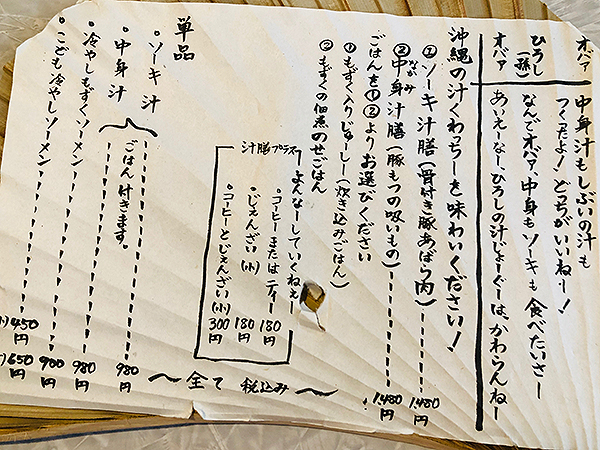 オバァ 中身汁もしぶいの汁も
つくだよ!どっちがいいねー!
ひろし(孫) なんでオバァ、中身もソーキも食べたいさー
オバァ あぃえーなー、ひろしの汁じょーぐーは、かわらんねー
沖縄の汁くわっちーを味わいください!
①ソーキ汁膳(骨付き豚あばら肉) 1,480円
②中身汁膳(豚もつの吸いもの) 1,480円
なかみ
ごはんを①②よりお選びください
①もずく入りじゅーしー(炊き込みごはん)
②もずくの佃煮のせごはん
汁膳プラス
よんなーしていくねぇー
・コーヒーまたはティー 180円
・じぇんざい(小) 180円
・コーヒーとじぇんざい(小) 300円
〜全て 税込み〜
単品
・ソーキ汁
・中身汁
ごはん付きます。 980円
・冷やしもずくソーメン 980円
・こども冷やしソーメン 900円
450円
650円